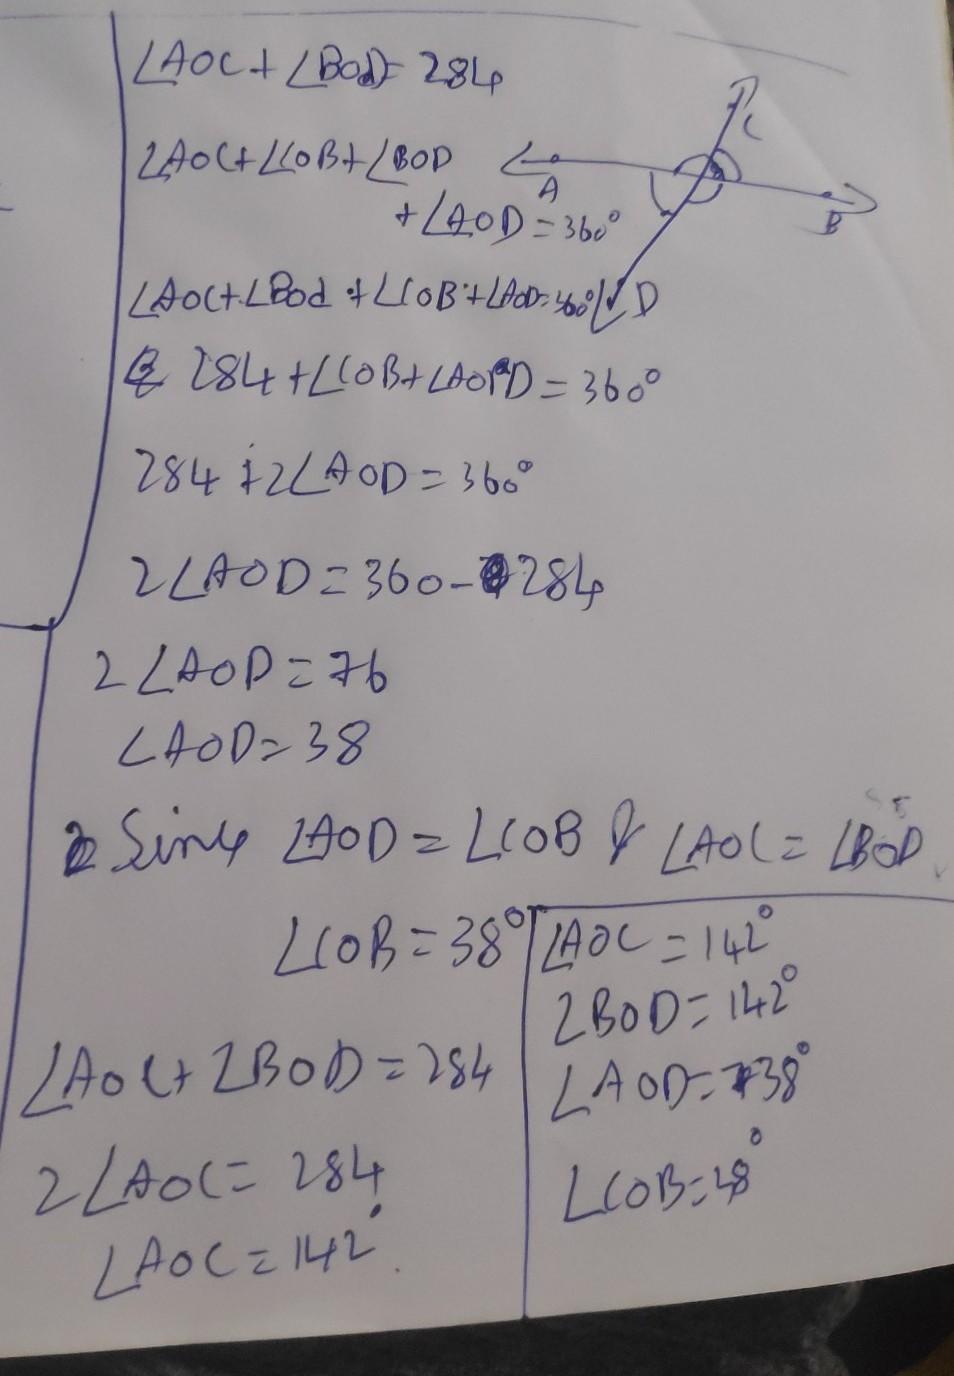 ∠AOC + ∠BOD = 284
∠AOC + ∠COB + ∠BOD
+ ∠AOD = 360°
C
A
B
D
∠AOC + ∠BOd + ∠COB + ∠AOD = 360°
284 + ∠COB + ∠AOD = 360°
284 + 2∠AOD = 360°
2∠AOD = 360 - 284
2∠AOD = 76
∠AOD = 38
Since ∠AOD = ∠COB & ∠AOC = ∠BOD
∠COB = 38°
∠AOC + ∠BOD = 284
2∠AOC = 284
∠AOC = 142°.
∠AOC = 142°
∠BOD = 142°
∠AOD = 38°
∠COB = 38°